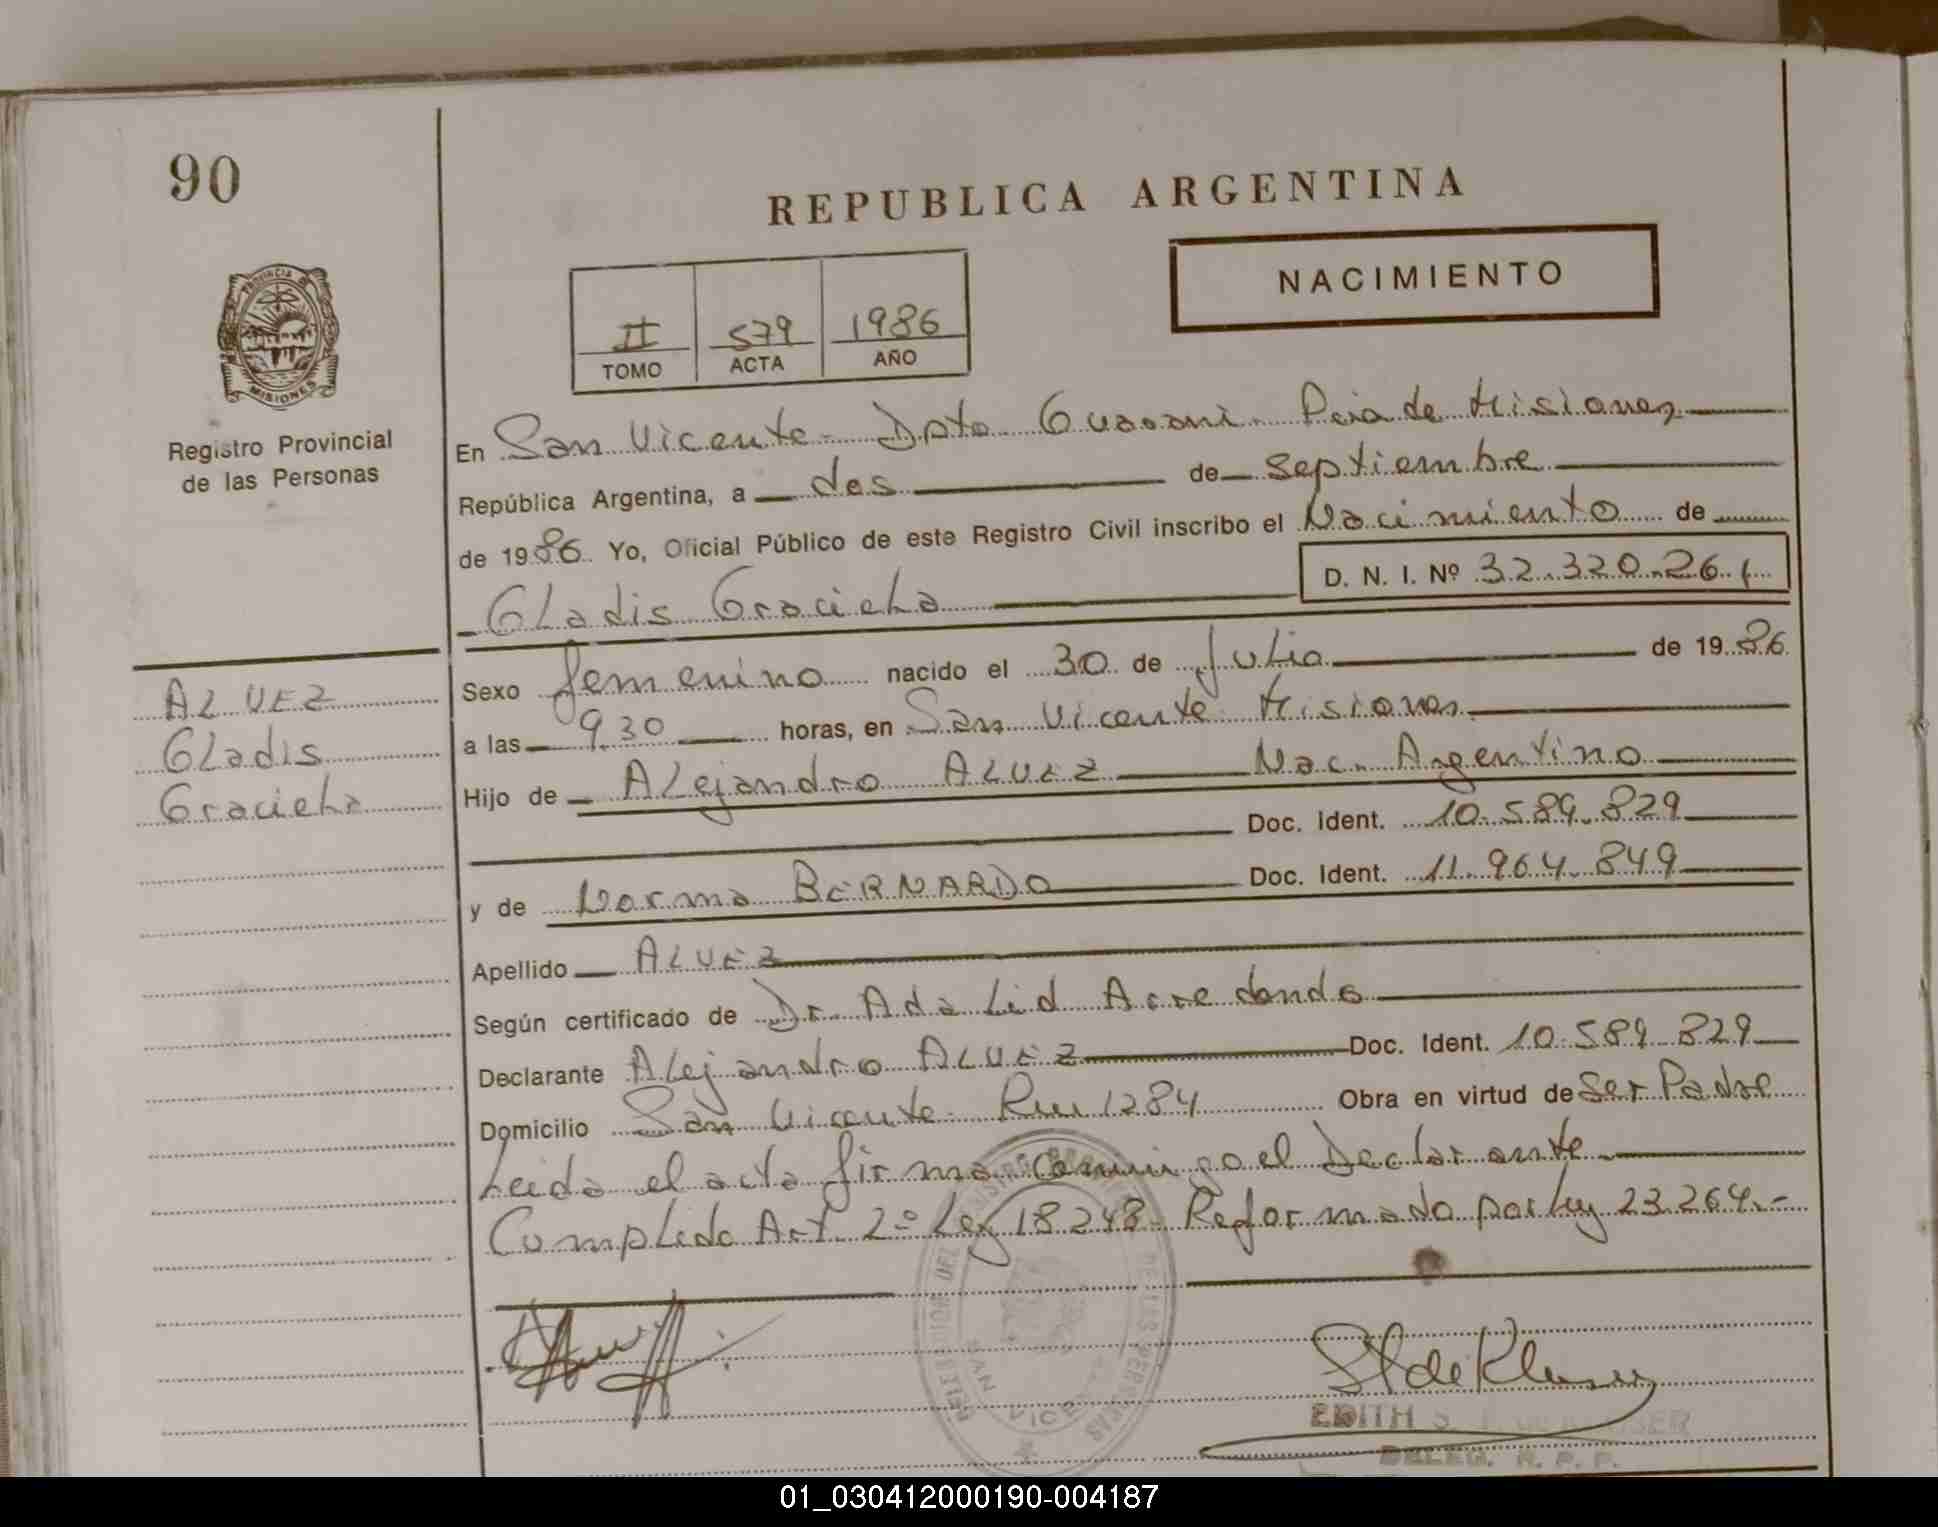 90
REPUBLICA ARGENTINA
NACIMIENTO
II 579 1986
TOMO ACTA AÑO
PROVINCIA DE
MISIONES
Registro Provincial
de las Personas
En San Vicente - Dpto Guarani - Pcia de Misiones
República Argentina, a dos de septiembre
de 1986 Yo, Oficial Público de este Registro Civil inscribo el Nacimiento de
D. N. I. Nº 32.320.261
Gladis Graciela
ALVEZ
Gladis
Graciela
Sexo femenino nacido el 30 de Julio de 1986
a las 9.30 horas, en San Vicente Misiones
Hijo de Alejandro ALVEZ Nac. Argentino
Doc. Ident. 10.589.829
y de Norma BERNARDO Doc. Ident. 11.964.849
Apellido ALVEZ
Según certificado de Dr. Adalid Arredondo
Declarante Alejandro ALVEZ Doc. Ident. 10.589.829
Domicilio San Vicente - 1284 Obra en virtud de Ser Padre
Leida el acta firma conmigo el Declarante
Cumplido Art. 2º Ley 18.248 - Reformado por Ley 23.264.-
SAN VICENTE
DE LAS PERSONAS
EDITH S.
DELEG. R. P. P.
01_030412000190-004187